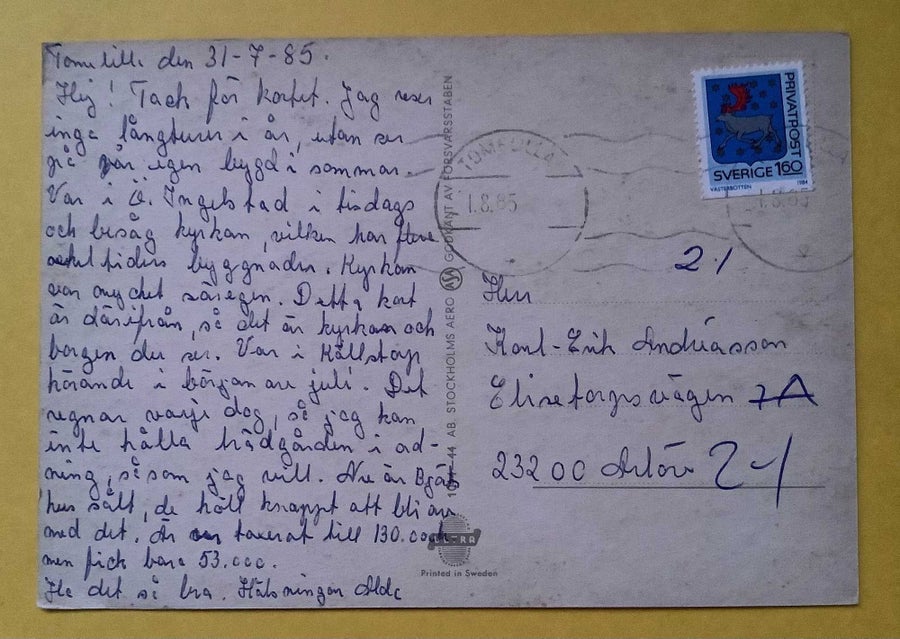 Tomelilla den 31-7-85.
Hej! Tack för kortet. Jag reser
inga långturer i år, utan ser
på vår egen bygd i sommar.
Var i Ö. Ingelstad i tisdags
och besåg kyrkan, vilken har flera
tiders byggnader. Kyrkan
var mycket säregen. Detta kort
är därifrån, så det är kyrkan och
borgen du ser. Var i Kållstorp
hörande i början av juli. Det
regnar varje dag, så jag kan
inte hålla trädgården i ord-
ning, såsom jag vill. Nu är
hus sålt, de höll knappt att bli av
med det. Är taxerat till 130.000
men fick bara 53.000.
Ha det så bra. Hälsningar
1011-44 AB. STOCKHOLMS AERO ASA GODKÄNT AV FÖRSVARSSTABEN
ULTRA
Printed in Sweden
TOMELILLA
1.8.85
1.8.85
PRIVATPOST
SVERIGE 160
VÄSTERBOTTEN 1984
21
Herr
Karl-Erik Andréasson
Elisetorpsvägen 7A
23200 Arlöv 21